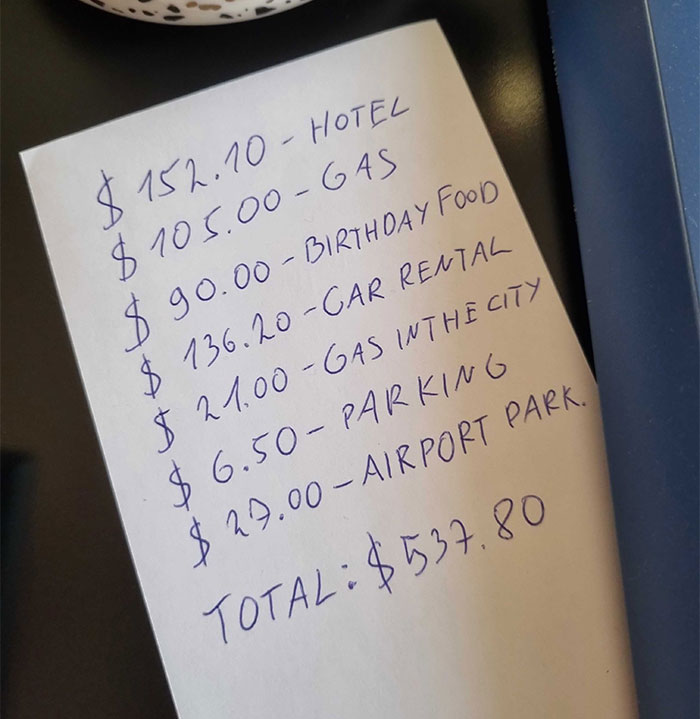 $ 152.10 - HOTEL
$ 105.00 - GAS
$ 90.00 - BIRTHDAY FOOD
$ 136.20 - CAR RENTAL
$ 21.00 - GAS IN THE CITY
$ 6.50 - PARKING
$ 27.00 - AIRPORT PARK.
TOTAL: $537.80